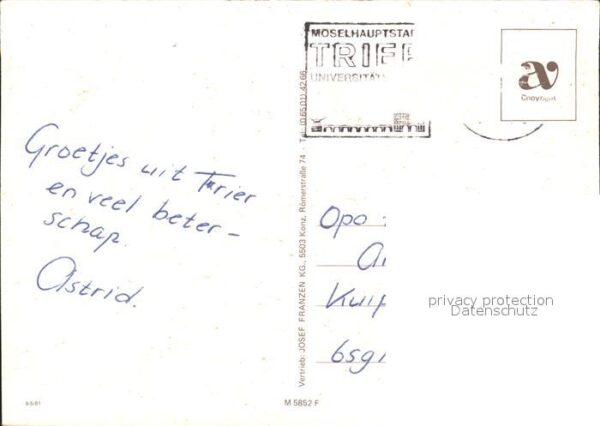 MOSELHAUPTSTA
TRIER
UNIVERSITÄT
av
Copyright
Groetjes uit Trier
en veel beter-
schap.
Astrid.
Vertrieb: JOSEF FRANZEN KG., 5503 Konz, Römerstraße 74 - Tel. (0 65 01) 42 66
Opo
Kuip
6sg
privacy protection
Datenschutz
M 5852 F